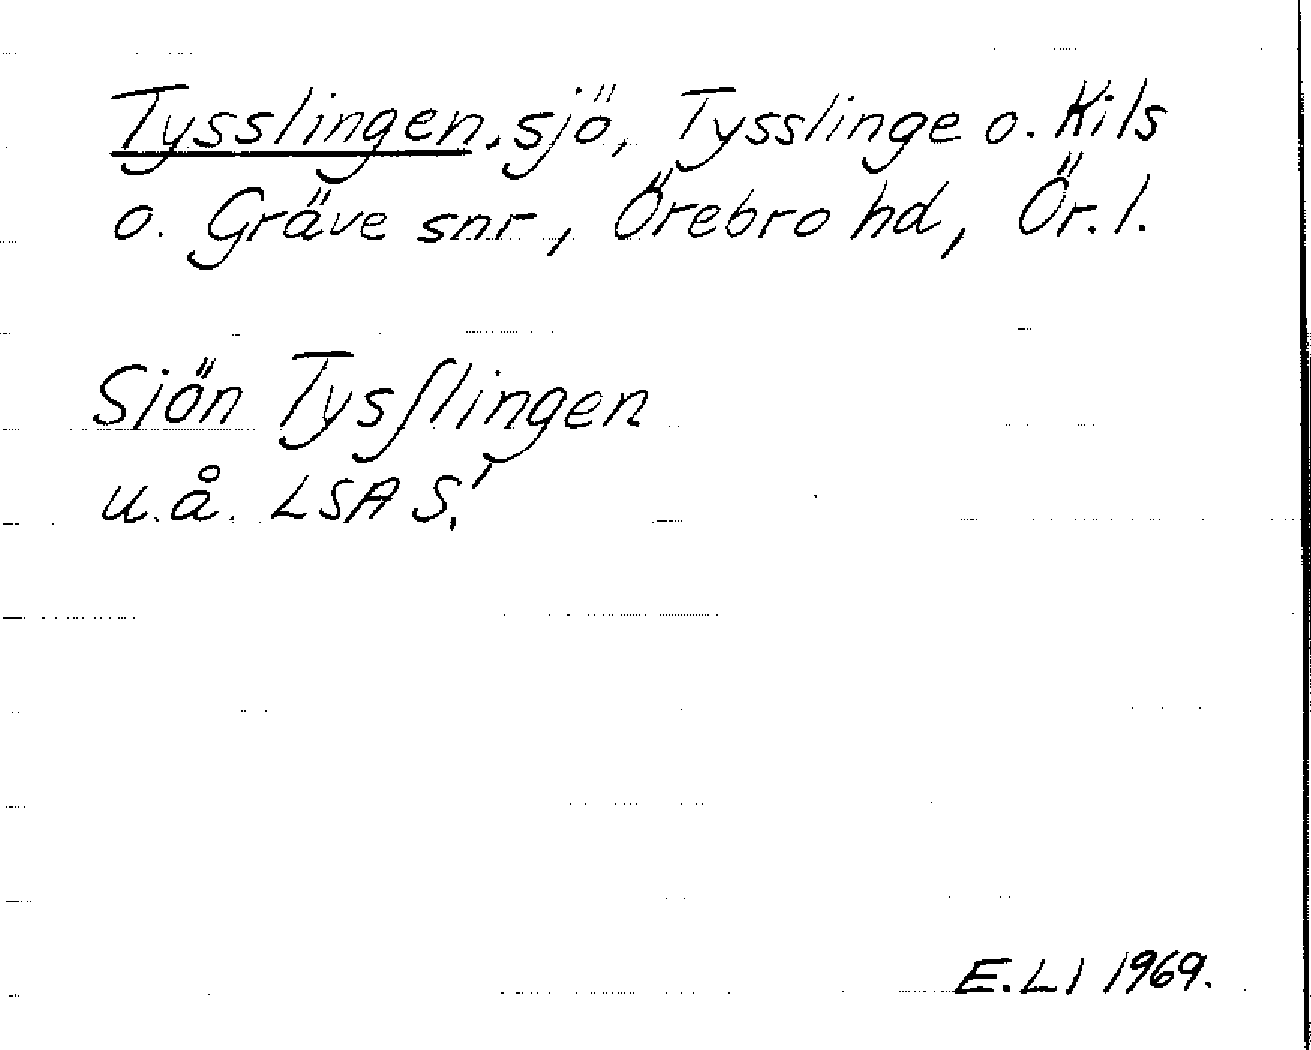 Tysslingen, sjö, Tysslinge o. Kils
o. Gräve snr, Örebro hd, Ör. l.
Sjön Tysſlingen
u.å. LSA S!
E.Lj 1969.